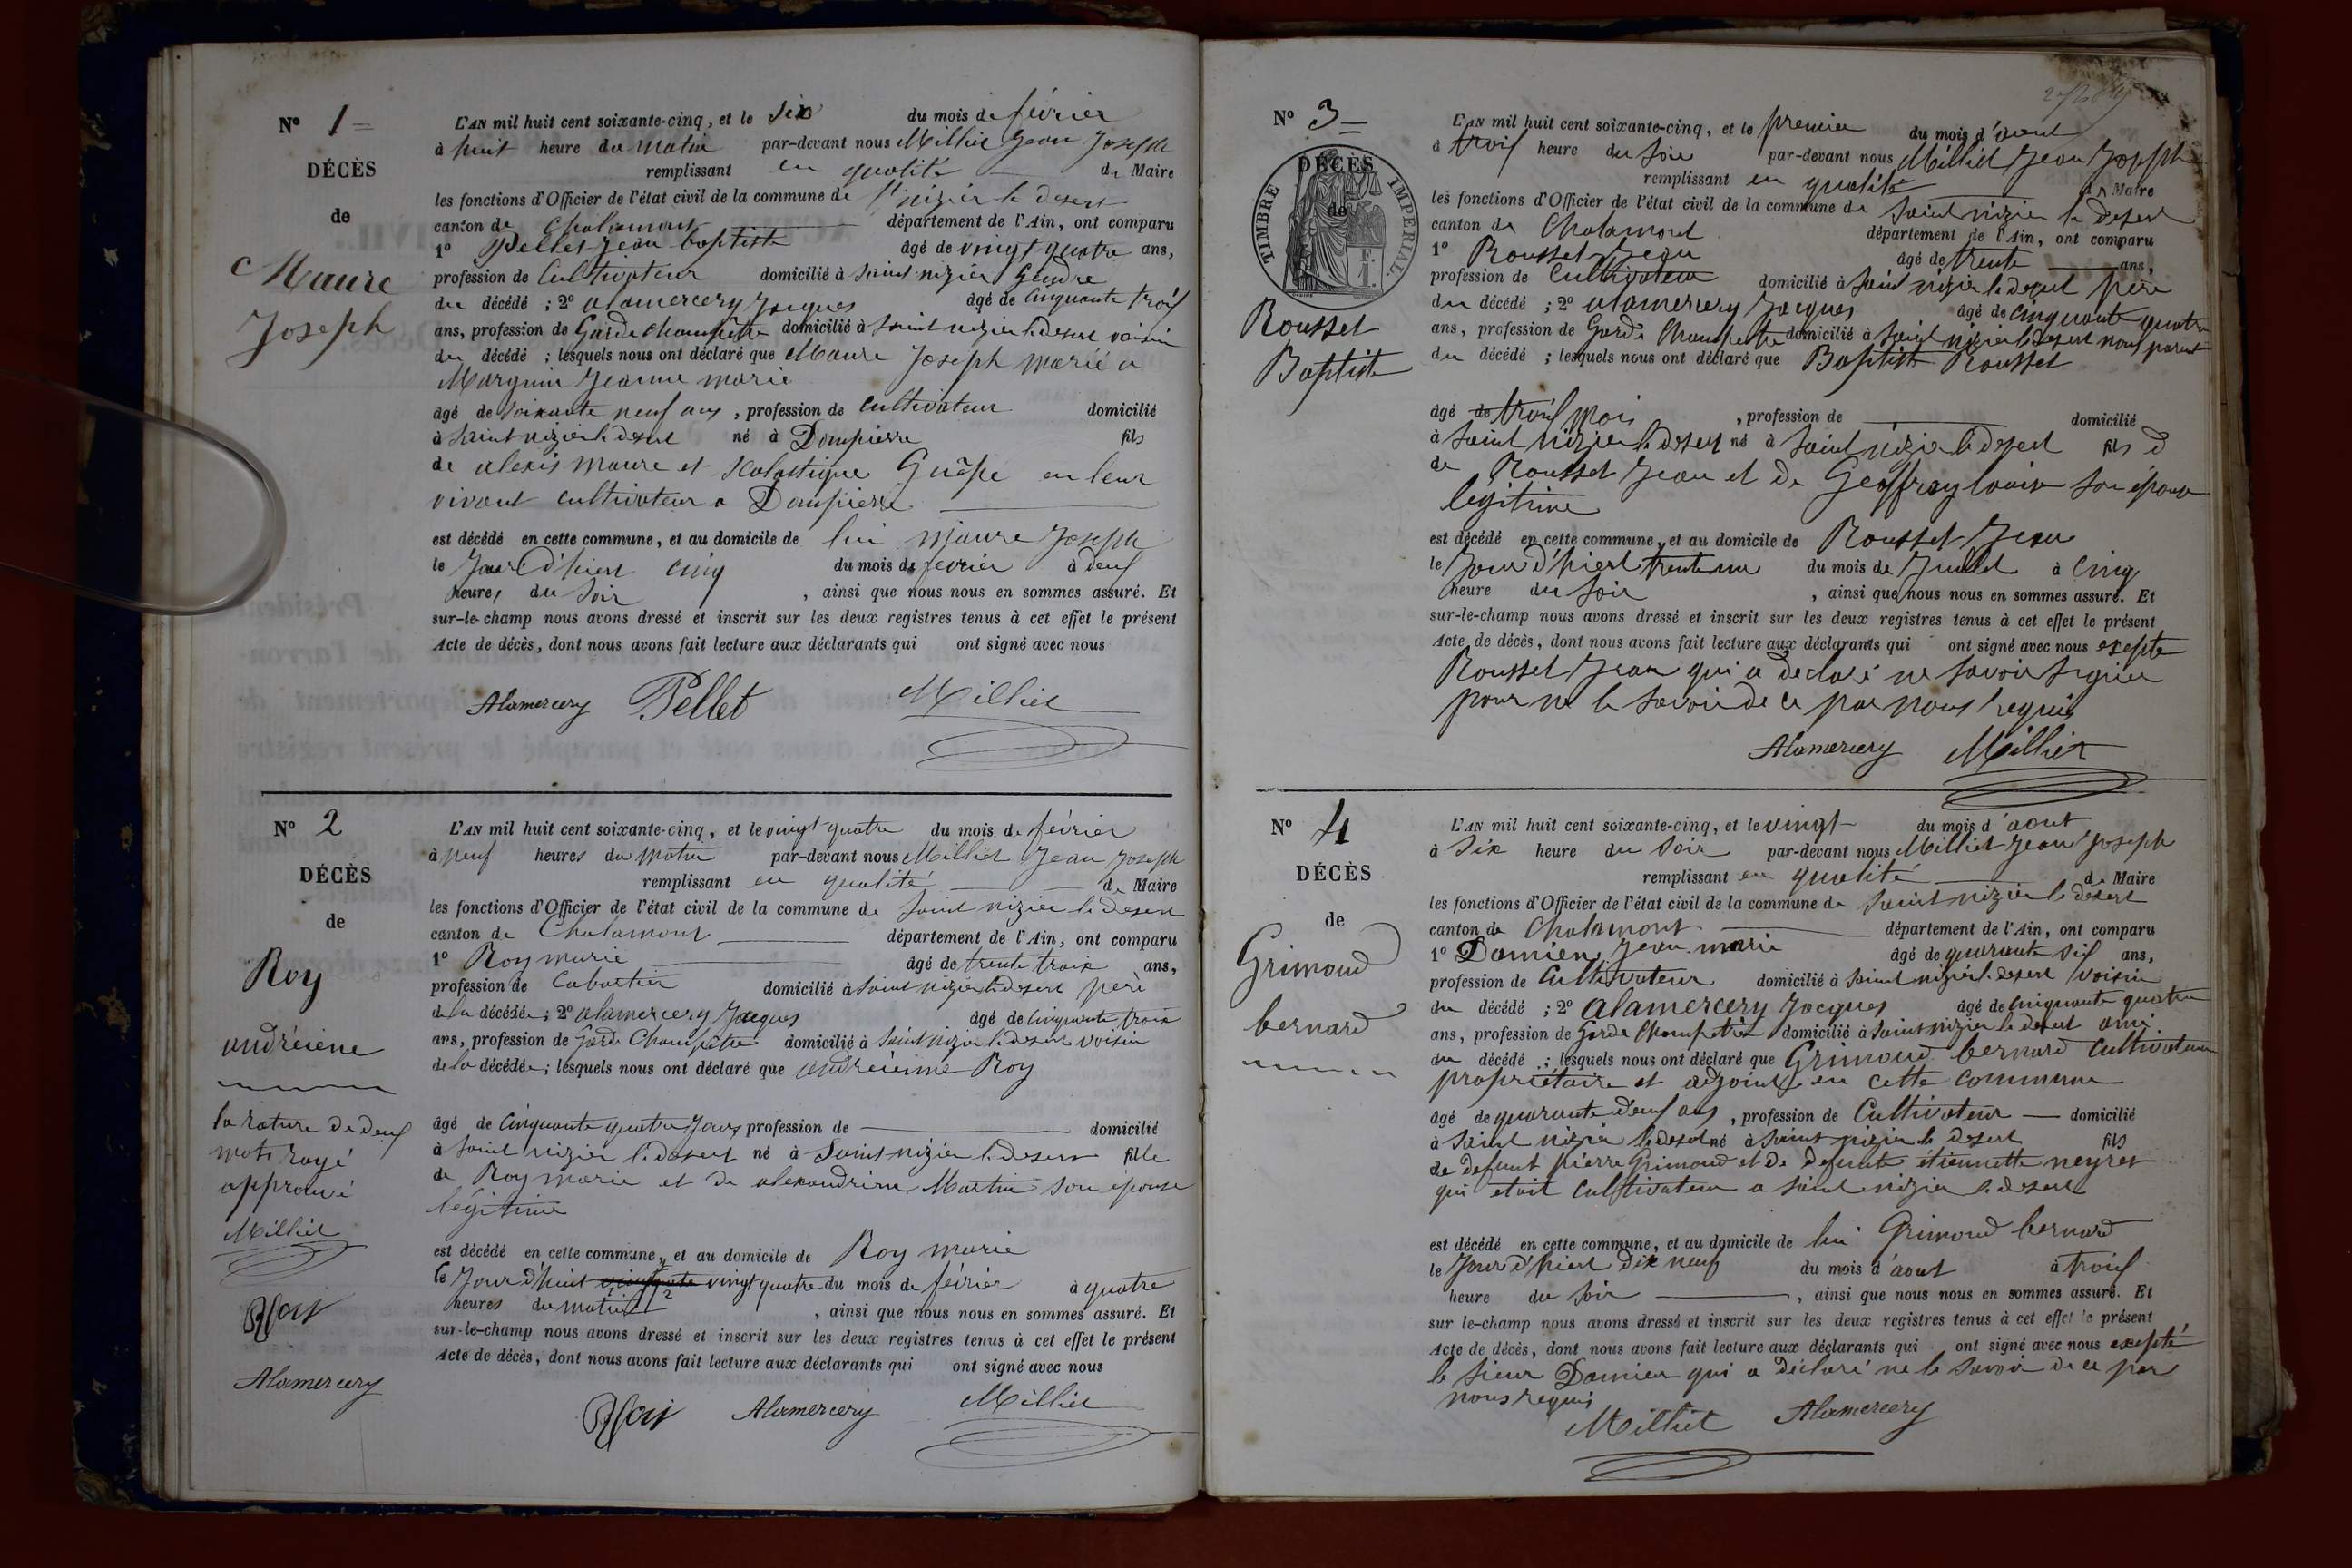 N° 1
DÉCÈS
de
Maure
Joseph
L'AN mil huit cent soixante-cinq, et le six du mois de février
à huit heure du matin par-devant nous Milliet Jean Joseph
remplissant en qualité de Maire
les fonctions d'Officier de l'état civil de la commune de St nizier le desert
canton de Chalamont département de l'Ain, ont comparu
1° Pellet Jean baptiste âgé de vingt quatre ans,
profession de Cultivateur domicilié à saint nizier Gendre
du décédé ; 2° alamercery Jacques âgé de cinquante trois
ans, profession de Garde champêtre domicilié à saint nizier le desert voisin
du décédé ; lesquels nous ont déclaré que Maure Joseph marié a
Marguin Jeanne marie
âgé de soixante neuf ans, profession de cultivateur domicilié
à saint nizier le desert né à Dompierre fils
de alexis maure et scolastique Guêpe en leur
vivant cultivateur a Dompierre
est décédé en cette commune, et au domicile de lui maure Joseph
le Jour d'hier cinq du mois de fevrier à deux
heures du soir, ainsi que nous nous en sommes assuré. Et
sur-le-champ nous avons dressé et inscrit sur les deux registres tenus à cet effet le présent
Acte de décès, dont nous avons fait lecture aux déclarants qui ont signé avec nous
Alamercery Pellet Milliet
N° 2
DÉCÈS
de
Roy
andréiene
la rature de deux
mots rayé
approuvé
Milliet
Roy
Alamercery
L'AN mil huit cent soixante-cinq, et le vingt quatre du mois de février
à neuf heures du matin par-devant nous Milliet Jean Joseph
remplissant en qualité de Maire
les fonctions d'Officier de l'état civil de la commune de saint nizier le desert
canton de Chalamont département de l'Ain, ont comparu
1° Roy marie âgé de trente trois ans,
profession de Cabartier domicilié à saint nizier le desert père
de la décédée ; 2° alamercery Jacques âgé de cinquante trois
ans, profession de Garde Champêtre domicilié à saint nizier le desert voisin
de la décédée ; lesquels nous ont déclaré que andréienne Roy
âgé de cinquante quatre Jours, profession de domicilié
à saint nizier le desert né à Saint nizier le desert fille
de Roy marie et de alexandrine Martin son epouse
légitime
est décédé en cette commune, et au domicile de Roy marie
le Jour d'huit vingt quatre du mois de février à quatre
heures du matin, ainsi que nous nous en sommes assuré. Et
sur-le-champ nous avons dressé et inscrit sur les deux registres tenus à cet effet le présent
Acte de décès, dont nous avons fait lecture aux déclarants qui ont signé avec nous
Roy Alamercery Milliet
N° 3
DÉCÈS
de
TIMBRE IMPERIAL
F.
1.
Rousset
Baptiste
L'AN mil huit cent soixante-cinq, et le premier du mois d'aout
à trois heure du soir par-devant nous Milliet Jean Joseph
remplissant en qualité de Maire
les fonctions d'Officier de l'état civil de la commune de Saint nizier le desert
canton de Chalamont département de l'Ain, ont comparu
1° Rousset Jean âgé de trente ans,
profession de Cultivateur domicilié à saint nizier le desert père
du décédé ; 2° alamercery Jacques âgé de cinquante quatre
ans, profession de Garde Champetre domicilié à saint nizier le desert non parent
du décédé ; lesquels nous ont déclaré que Baptiste Rousset
âgé de trois mois, profession de domicilié
à saint nizier le desert né à saint nizier le desert fils d
de Rousset Jean et de Geoffray louise son épouse
legitime
est décédé en cette commune, et au domicile de Rousset Jean
le Jour d'hier trente un du mois de Juillet à cinq
heure du soir, ainsi que nous nous en sommes assuré. Et
sur-le-champ nous avons dressé et inscrit sur les deux registres tenus à cet effet le présent
Acte de décès, dont nous avons fait lecture aux déclarants qui ont signé avec nous exepte
Rousset Jean qui a declaré ne savoir signer
pour ne le savoir de ce par nous requis
Alamercery Milliet
N° 4
DÉCÈS
de
Grimoud
bernard
L'AN mil huit cent soixante-cinq, et le vingt du mois d'aout
à six heure du soir par-devant nous Milliet Jean Joseph
remplissant en qualité de Maire
les fonctions d'Officier de l'état civil de la commune de saint nizier le desert
canton de Chalamont département de l'Ain, ont comparu
1° Damien Jean marie âgé de quarante six ans,
profession de Cultivateur domicilié à saint nizier le desert voisin
du décédé ; 2° alamercery Jacques âgé de cinquante quatre
ans, profession de Garde Champetre domicilié à saint nizier le desert ami
du décédé ; lesquels nous ont déclaré que Grimoud bernard Cultivateur
proprietaire et adjoint en cette commune
âgé de quarante deux ans, profession de Cultivateur domicilié
à saint nizier le desert né à saint nizier le desert fils
de defunt pierre Grimoud et de defunte étiennette neyret
qui etait cultivateur a saint nizier le desert
est décédé en cette commune, et au domicile de lui Grimoud bernard
le Jour d'hier dix neuf du mois d'aout à trois
heure du soir, ainsi que nous nous en sommes assuré. Et
sur le-champ nous avons dressé et inscrit sur les deux registres tenus à cet effet le présent
Acte de décès, dont nous avons fait lecture aux déclarants qui ont signé avec nous exepté
le sieur Damien qui a déclaré ne le savoir de ce par
nous requis
Milliet Alamercery